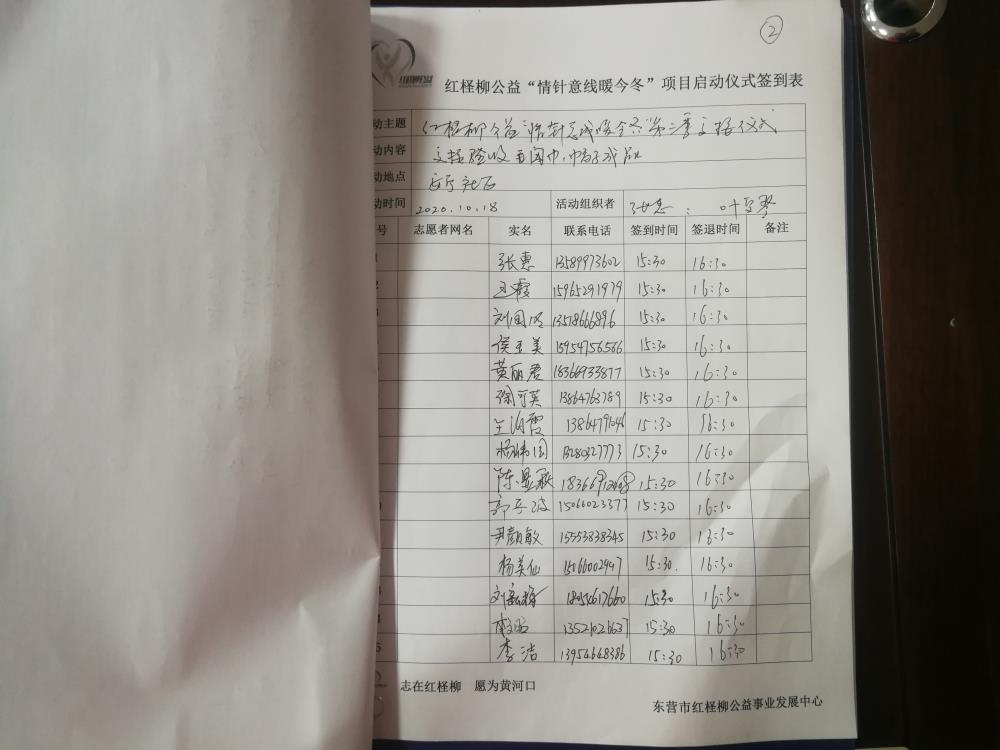 ②
红柽柳公益“情针意线暖今冬”项目启动仪式签到表
动主题 红柽柳公益“情针意线暖今冬”第二季交接仪式
动内容 交接验收围巾、帽子
动地点 社区
动时间 2020.10.18 活动组织者 张惠
号 志愿者网名 实名 联系电话 签到时间 签退时间 备注
张惠 13589973602 15:30 16:30
王霞 15965291979 15:30 16:30
刘国 13518666896 15:30 16:30
侯玉美 15954756566 15:30 16:30
黄丽君 18366933877 15:30 16:30
13864763789 15:30 16:30
王海霞 15:30 16:30
杨伟国 13280327773 15:30 16:30
陈 15:30 16:30
郭 15066023377 15:30 16:30
尹颜敏 15553838345 15:30 16:30
杨美仙 15:30 16:30
刘 15:30 16:30
15:30 16:30
5 李洁 13954648386 15:30 16:30
志在红柽柳 愿为黄河口
东营市红柽柳公益事业发展中心